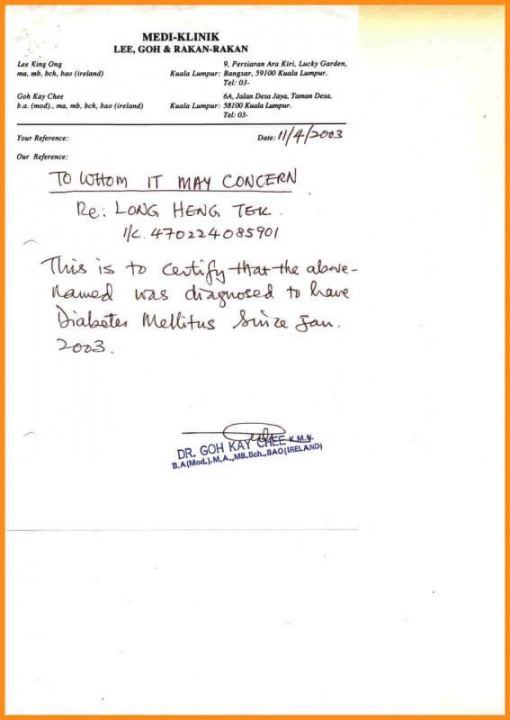 MEDI-KLINIK
LEE, GOH & RAKAN-RAKAN
Lee King Ong
ma, mb, bch, bao (ireland)
9, Persiaran Ara Kiri, Lucky Garden,
Kuala Lumpur: Bangsar, 59100 Kuala Lumpur.
Tel: 03-
Goh Kay Chee
b.a. (mod)., ma, mb, bch, bao (ireland)
6A, Jalan Desa Jaya, Taman Desa,
Kuala Lumpur: 58100 Kuala Lumpur.
Tel: 03-
Your Reference:
Date: 11/4/2003
Our Reference:
TO WHOM IT MAY CONCERN
Re: LONG HENG TEK.
I/c. 470224085901
This is to certify that the above-
named was diagnosed to have
Diabetes Mellitus Since Jan.
2003.
DR. GOH KAY CHEE K.M.N.
B.A(Mod.), M.A., MB.Bch., BAO(IRELAND)